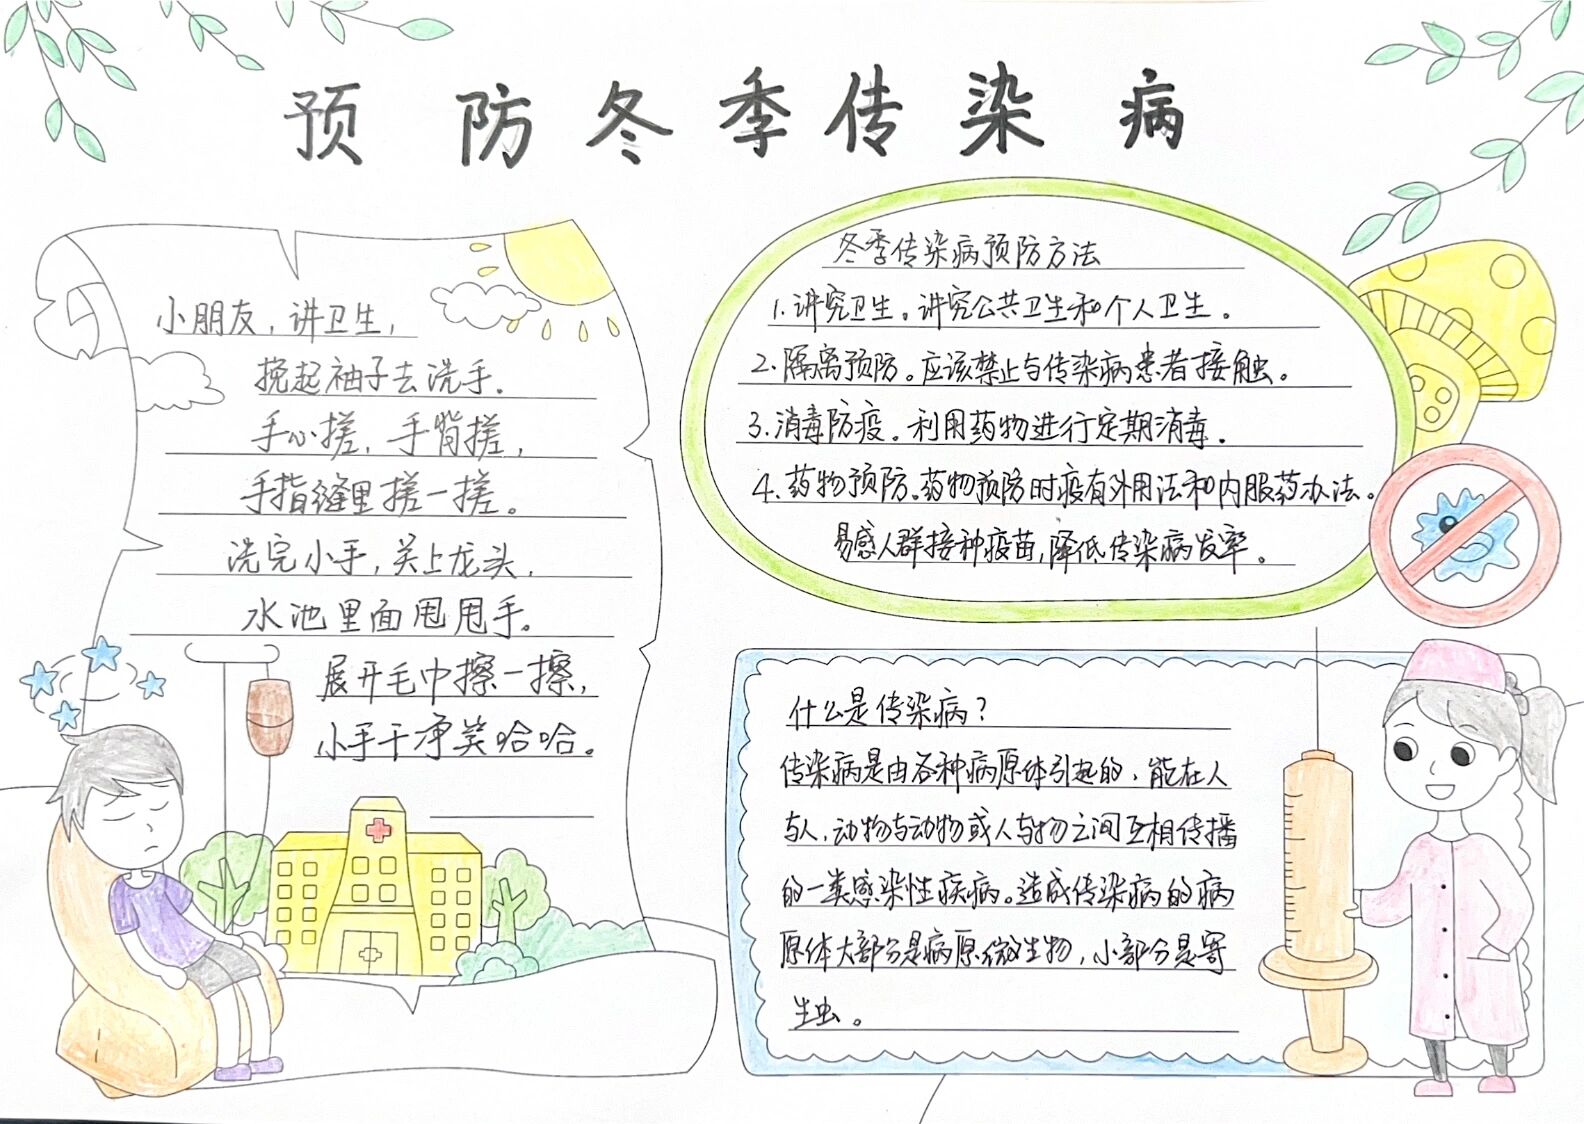 预防冬季传染病
小朋友，讲卫生，
挽起袖子去洗手。
手心搓，手背搓，
手指缝里搓一搓。
洗完小手，关上龙头，
水池里面甩甩手。
展开毛巾擦一擦，
小手干净笑哈哈。
冬季传染病预防方法
1.讲究卫生。讲究公共卫生和个人卫生。
2.隔离预防。应该禁止与传染病患者接触。
3.消毒防疫。利用药物进行定期消毒。
4.药物预防。药物预防时疫有外用法和内服药办法。
易感人群接种疫苗，降低传染病发率。
什么是传染病？
传染病是由各种病原体引起的，能在人
与人，动物与动物或人与物之间互相传播
的一类感染性疾病。造成传染病的病
原体大部分是病原微生物，小部分是寄
生虫。